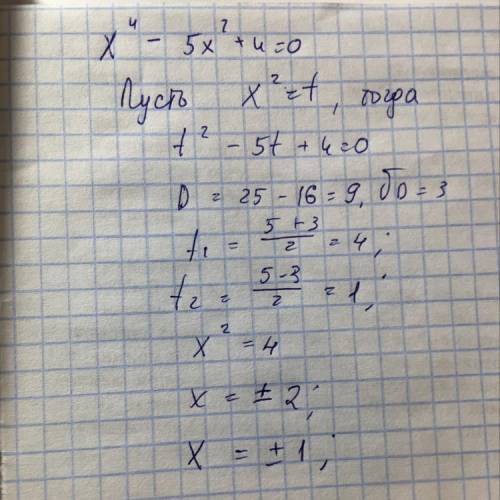 x⁴ - 5x² + 4 = 0
Пусть x² = t, тогда
t² - 5t + 4 = 0
D = 25 - 16 = 9, √D = 3
t₁ = (5 + 3)/2 = 4;
t₂ = (5 - 3)/2 = 1;
x² = 4
x = ± 2;
x = ± 1;